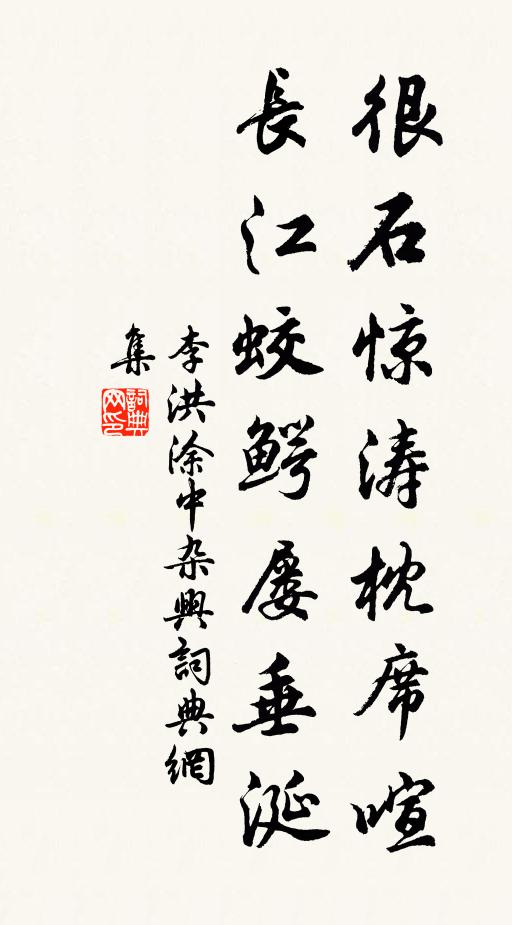 很石惊涛枕席喧
長江蛟鳄屡垂涎
李洪涂中杂興詞典網
集
詞典网印